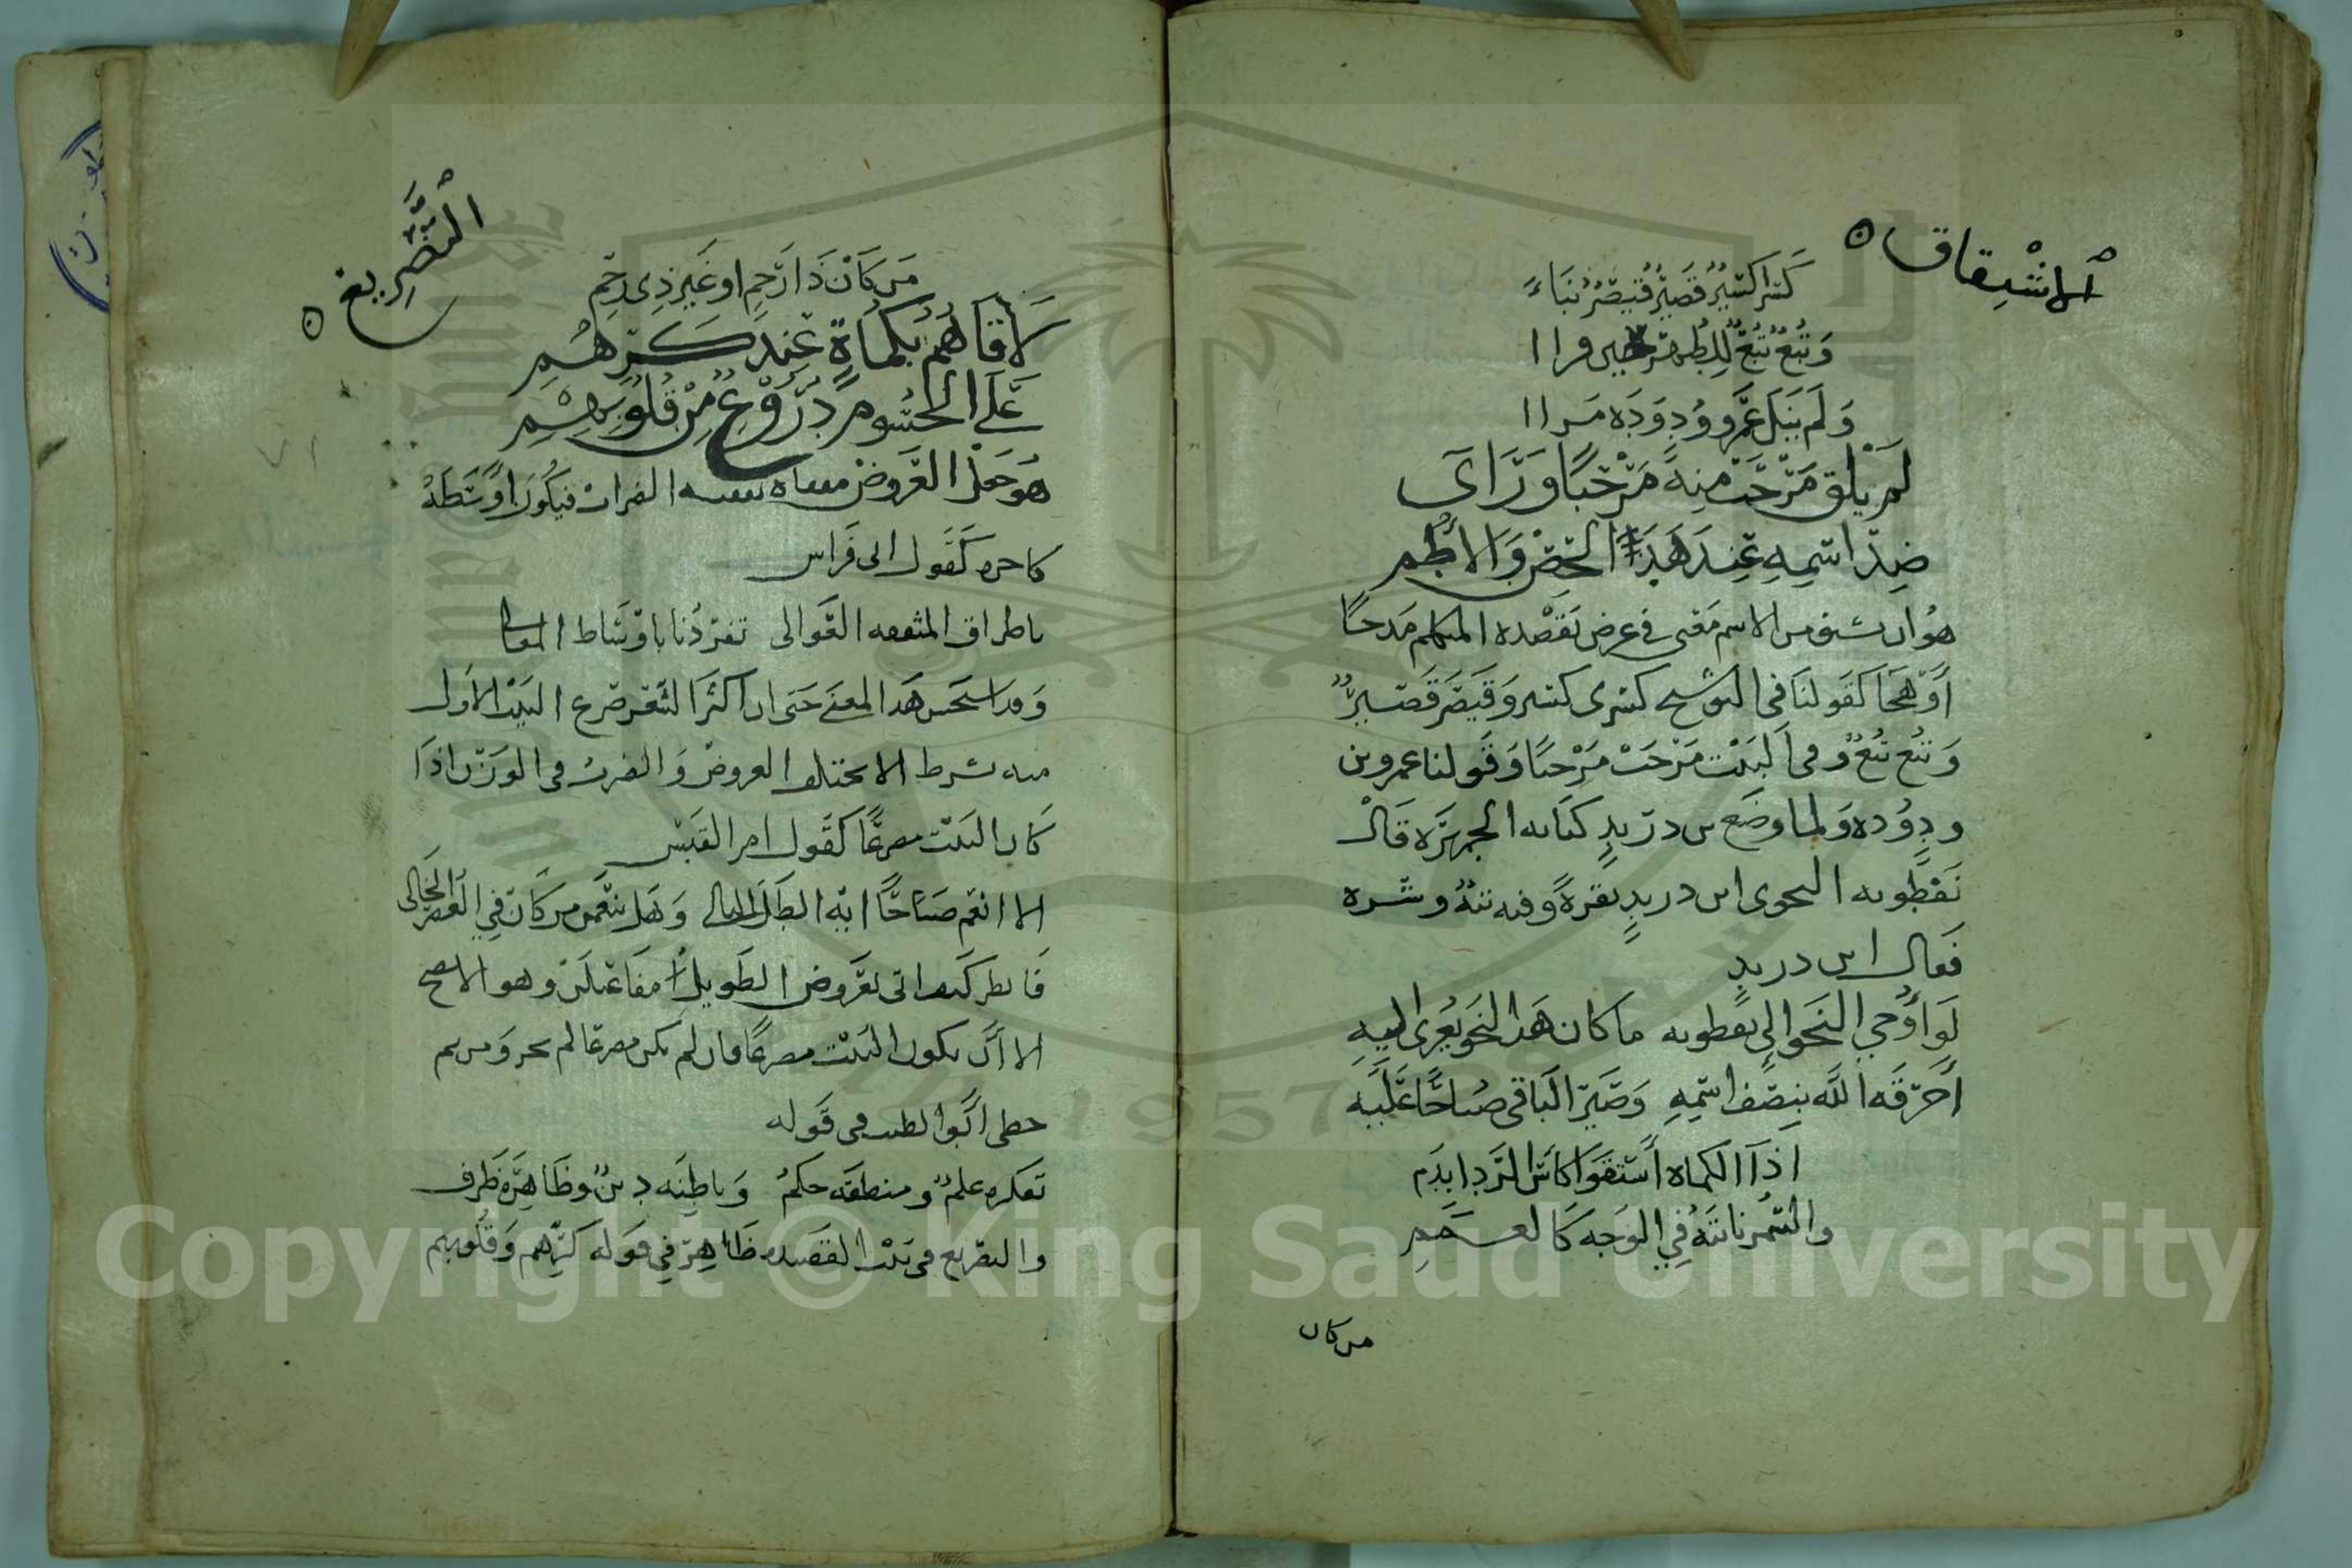 الاشتقاق
كسرا كسير قصير قيصر نباء
وتبع تبع للطهر حين قرا ا
ولم ينل عمرو ود وده مرا ا
لم يلق مرحب منه مرحبا وراى
ضد اسمه عند هد الحصن والاطم
هو ان يشتق من الاسم معنى في غرض يقصده المتكلم مدحا
او هجا كقولنا في التوشيح كسرى كسر وقيصر قصير
وتبع تبع وفي البيت مرحب مرحبا وقولنا عمرو بن
ود وده ولما وضع بن دريد كتابه الجمهرة قال
نفطويه النحوى ابن دريد بقرة وفيه تيه وشره
فقال ابن دريد
لو اوحي النحو الى نفطويه ما كان هذا النحو يعزى اليه
احرقه الله بنصف اسمه وصير الباقى صياحا عليه
اذا الكماة استقوا كاس الردا بدم
والسمر نابتة في الوجه كاللمم
من كان
التصريع
من كان ذا رحم او غير ذى رحم
لاقاهم بكماة عند كرهم
على الجسوم دروع من قلوبهم
هو جعل العروض مقفاة تقفيه الضرب فيكون اوسطه
كاخره كقول ابى فراس
باطراف المثقفه العوالى تفردنا باوساط المعالى
وقد استحسن هذا المعنى حتى ان اكثر الشعر صرع البيت الاول
منه بشرط الا يختلف العروض والضرب فى الوزن اذا
كان البيت مصرعا كقول امر القيس
الا انعم صباحا ايه الطلل البالى وهل ينعمن من كان في العصر الخالى
فانظر كيف اتى بعروض الطويل مفاعيلن وهو لا يصح
الا ان يكون البيت مصرعا فان لم يكن مصرعا لم يجز ومن ثم
خطى ابو الطيب فى قوله
تفكره علم ومنطقه حكم وباطنه دين وظاهره ظرف
والتصريع فى بيت القصيده ظاهر في قوله كرهم وقلوبهم
٧١
Copyright © King Saud University
1957